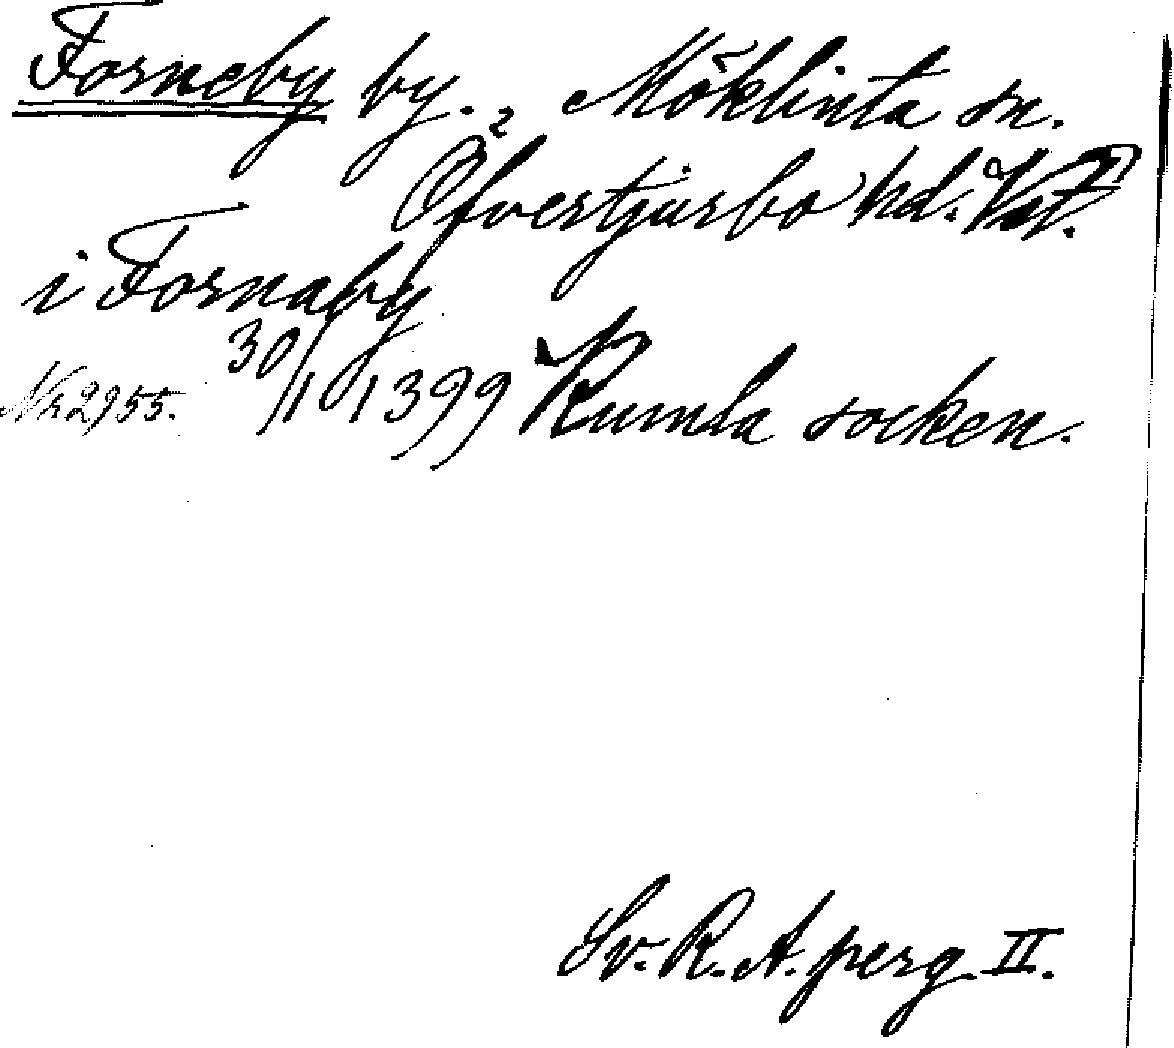 Forneby by., Möklinta sn.
Öfvertjurbo hd. Vst.
i Fornaby
Nr 2955. 30/10 1399 Rumla socken.
Sv. R. A. perg. II.